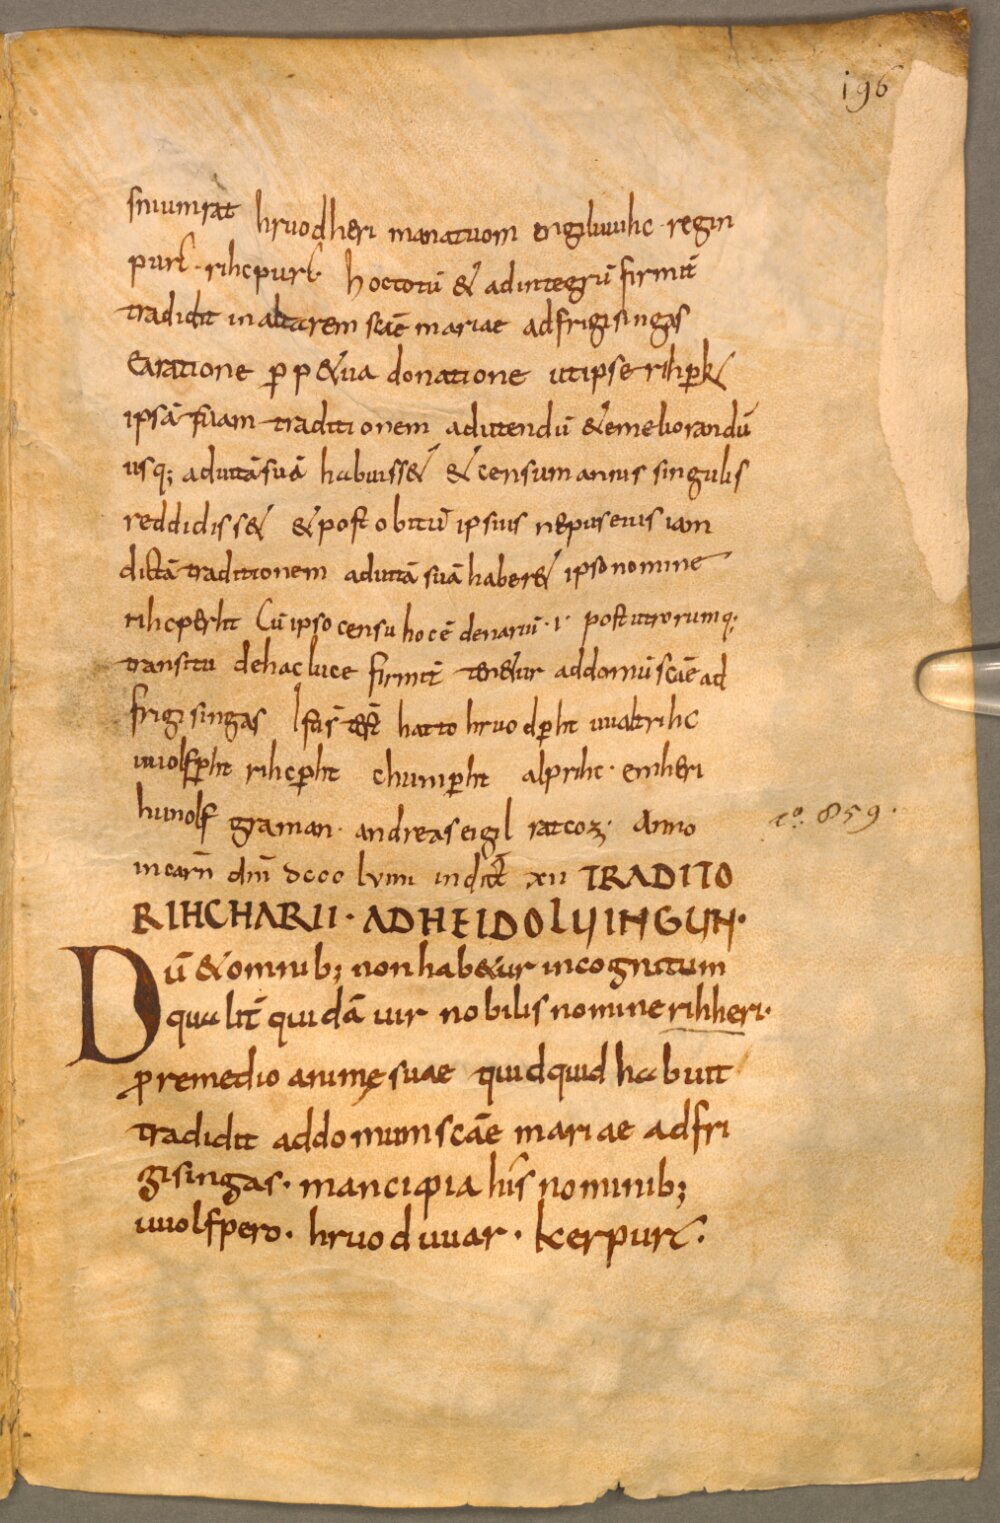 196
sniumrat hruodheri manatuom engiluuihc · regin
purc · rihcpurc · hoc totū & ad integrū firmit̄
tradidit in altarem scāe mariae ad frigisingas
Ea ratione ꝑp&ua donatione ut ipse rihꝑht
ipsā suam traditionem ad utendū & emeliorandū
usq; ad uitā suā habuiss& & censum annis singulis
reddidiss& & post obitū ipsius nepus eius iam
dictā traditionem ad uitā suā haber& ipso nomine
rihcperht Cū ipso censu hoc ē denariū · i · post utrorumq;
transitu de hac luce firmit̄ ten&ur ad domū scāe ad
frigisingas Isti s̄ test̄ hatto hruodꝑht uualtrihc
uuolfꝑht rihcꝑht chuniꝑht alprihc · emheri
hunolf graman · andreas eigil ratcoz · Anno
incarn̄ dn̄i dccc lviiii indict̄ xii TRADITO
aō. 859.
RIHCHARII · AD HEIDOLVINGUN ·
Dū & omnib; non hab&ur incognitum
qualit̄ quidā uir nobilis nomine rihheri ·
ꝓ remedio animę suae quidquid habuit
tradidit ad domum scāe mariae ad fri
gisingas · mancipia his nominib;
uuolfpero · hruoduuar · kerpurc ·